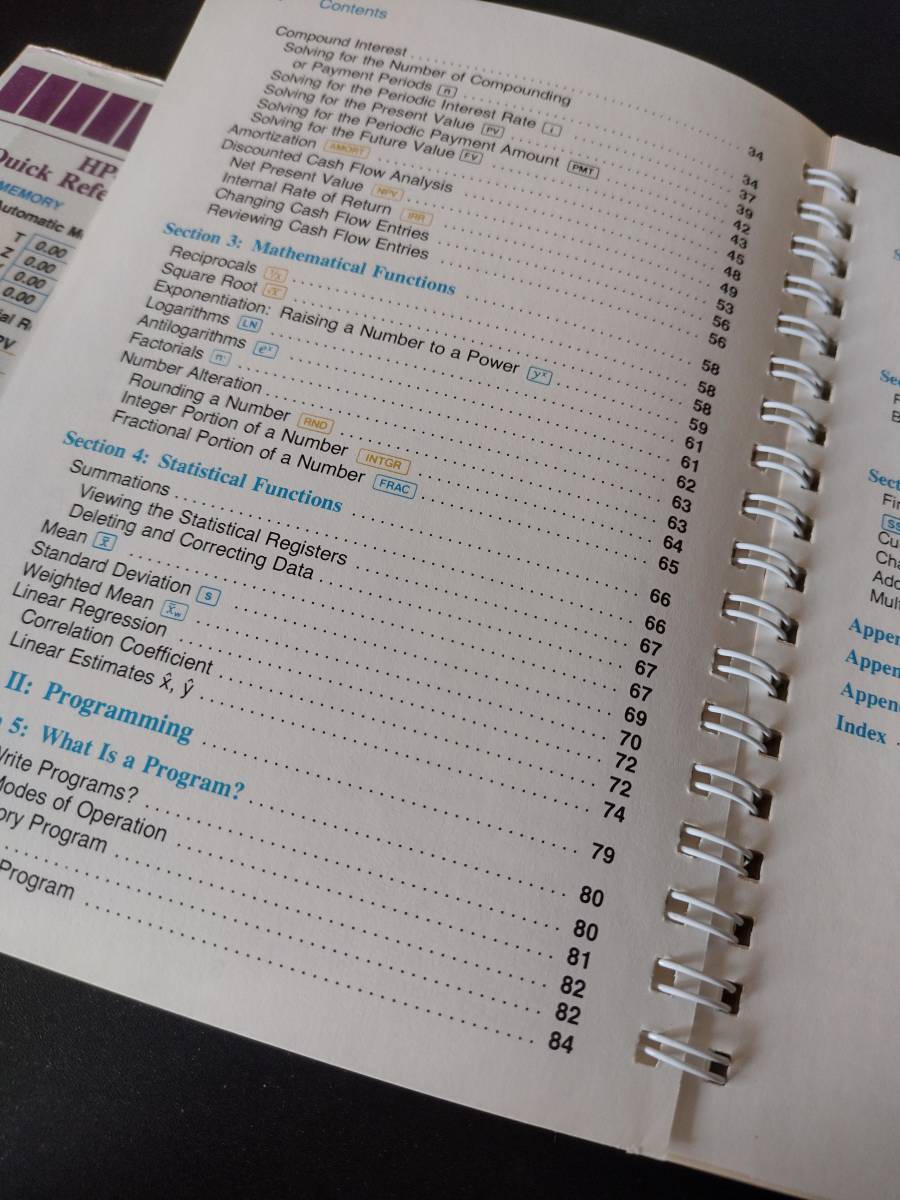 Contents
Compound Interest 34
Solving for the Number of Compounding
or Payment Periods n 34
Solving for the Periodic Interest Rate i 37
Solving for the Present Value PV 39
Solving for the Periodic Payment Amount PMT 42
Solving for the Future Value FV 43
Amortization AMORT 45
Discounted Cash Flow Analysis 48
Net Present Value NPV 49
Internal Rate of Return IRR 53
Changing Cash Flow Entries 56
Reviewing Cash Flow Entries 56
Section 3: Mathematical Functions 58
Reciprocals 1/x 58
Square Root √x 58
Exponentiation: Raising a Number to a Power yˣ 59
Logarithms LN 61
Antilogarithms eˣ 61
Factorials n! 62
Number Alteration 63
Rounding a Number RND 63
Integer Portion of a Number INTGR 64
Fractional Portion of a Number FRAC 65
Section 4: Statistical Functions 66
Summations 66
Viewing the Statistical Registers 67
Deleting and Correcting Data 67
Mean x̄ 67
Standard Deviation s 69
Weighted Mean x̄w 70
Linear Regression 72
Correlation Coefficient 72
Linear Estimates x̂, ŷ 74
II: Programming 79
5: What Is a Program? 80
Write Programs? 80
Modes of Operation 81
ory Program 82
82
Program 84
HP
Quick Refe
MEMORY
Automatic M
T 0.00
Z 0.00
0.00
0.00
Sec
Appen
Appen
Appen
Index